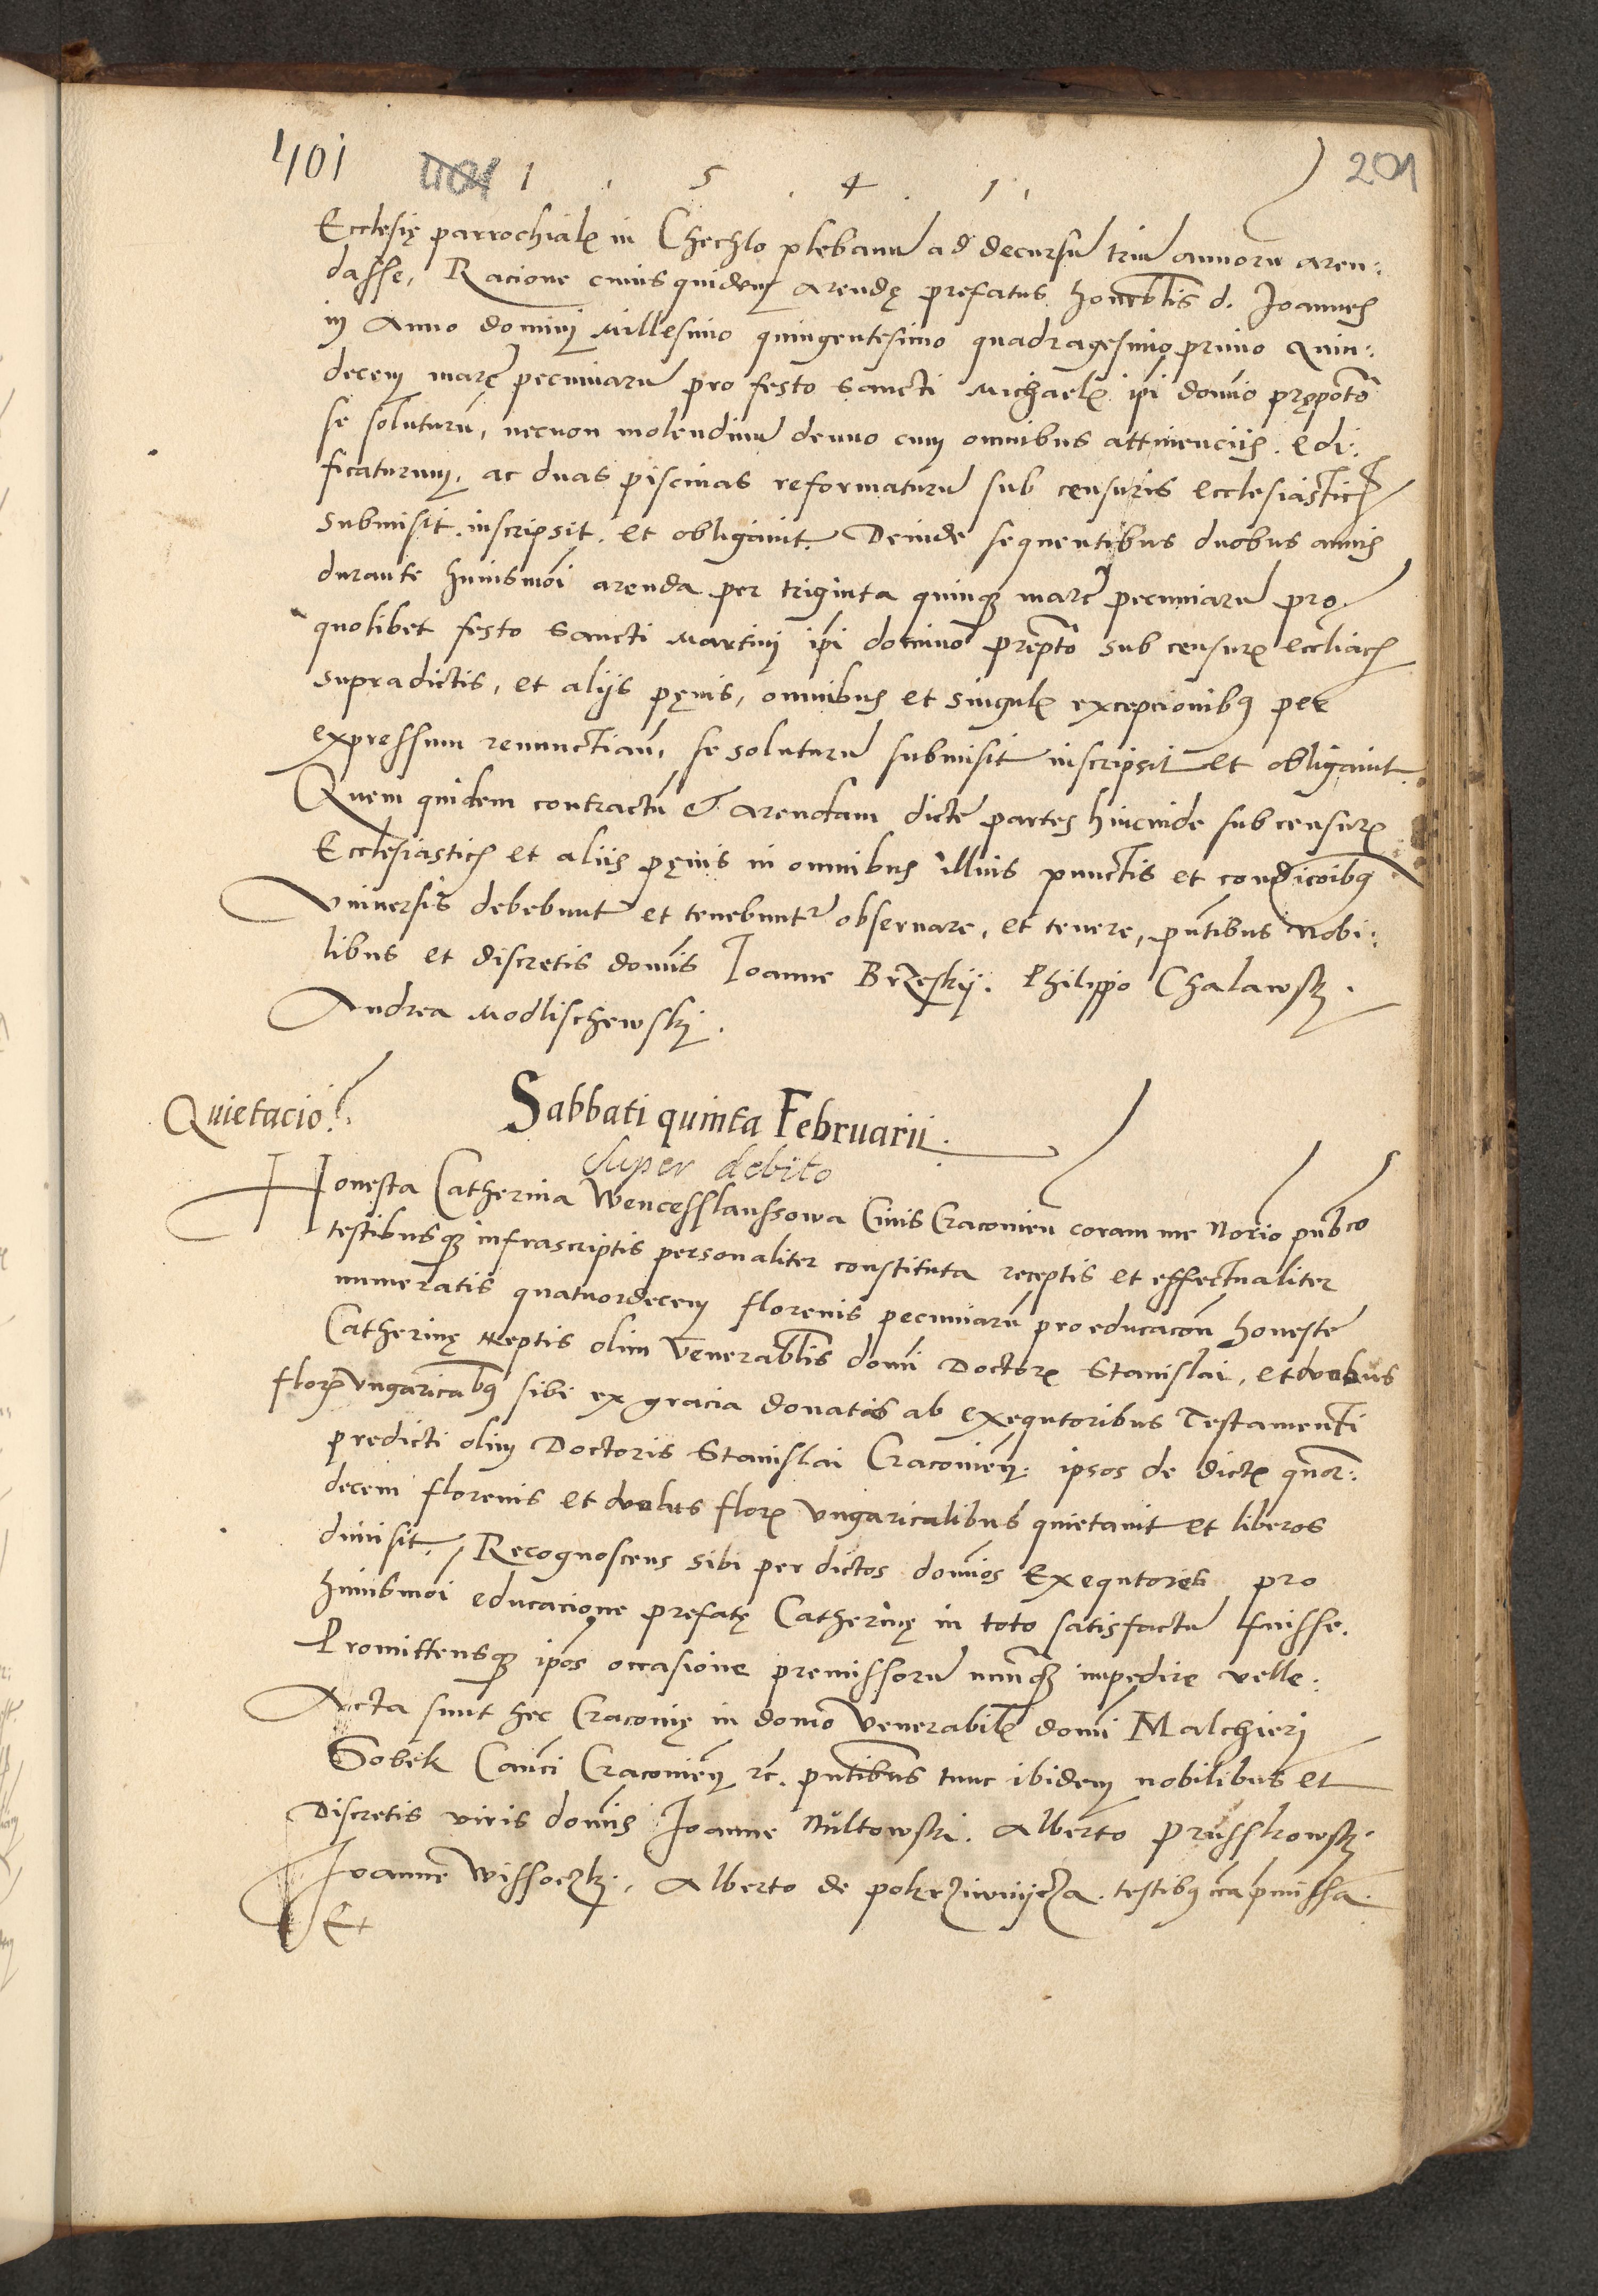 401 1 . 5 . 4 . 1 . 201
Ecclesię parrochialis in Chechlo plebanū ad decursū triū annorū aren:
dasse, Racione cuius quidem arendę prefatus honorablis d. Joannes
in Anno domini Millesimo quingentesimo quadragesimo primo Quin:
decem marc pecuniarū pro festo Sancti Michaelis ipi domino prępōto
se soluturū, necnon molendinū denuo cum omnibus attinenciis. edi:
ficaturum, ac duas piscinas reformaturū sub censuris ecclesiastic
submisit. inscripsit. et obligauit. Deinde sequentibus duobus annis
durante huiusmōi arenda per triginta quinq marc pecuniarū pro
quolibet festo Sancti Martini ipi domino prepto sub censuris eccliacis
supradictis, et alijs pęnis, omnibus et singulis excepcionibq per
expressum renunctiaṅ, se soluturū submisit inscripsit et obligauit.
Quem quidem contractū & arendam dictę partes hincinde sub censuris
Ecclesiasticis et aliis pęnis in omnibus illius punctis et condicōibq
vniuersis debebunt et tenebunt obseruare, et tenere, pntibus Nobi:
libus et discretis domīs Joanne Brzeskij. Philippo Chalawsky.
Andrea Modlischewskj.
Quietacio. Sabbati quinta Februarii.
super debito
Honesta Catherina Wencesslaussowa Ciuis Cracouien coram me Norio pubco
testibusq infrascriptis personaliter constituta receptis et effectualiter
numeratis quatuordecem florenis pecuniarū pro educacōn honestę
Catherinę Neptis olim Venerablis domī Doctoris Stanislai, et duobus
floris vngaricalibq sibi ex gracia donatis ab exequtoribus Testamenti
predicti olim Doctoris Stanislai Cracouień: ipsos de dictis quator:
decem florenis et duobus floris vngaricalibus quietauit et liberos
dimisit, Recognoscens sibi per dictos domīos Exequtores pro
huiusmōi educacione prefatę Catherinę in toto satisfactū fuisse.
Promittensq ipos occasione premissorū nunq impedire velle:
Acta sunt hec Cracouię in domo Venerabilis domī Malchieri
Sobek Canci Cracouień rc. pntibus tunc ibidem nobilibus et
Discretis viris domīs Joanne Nultowski. Alberto Prusskowsky
Joanne Wissoczky, Alberto de pokrziwnijcza. testibq cca pmissa.
Et